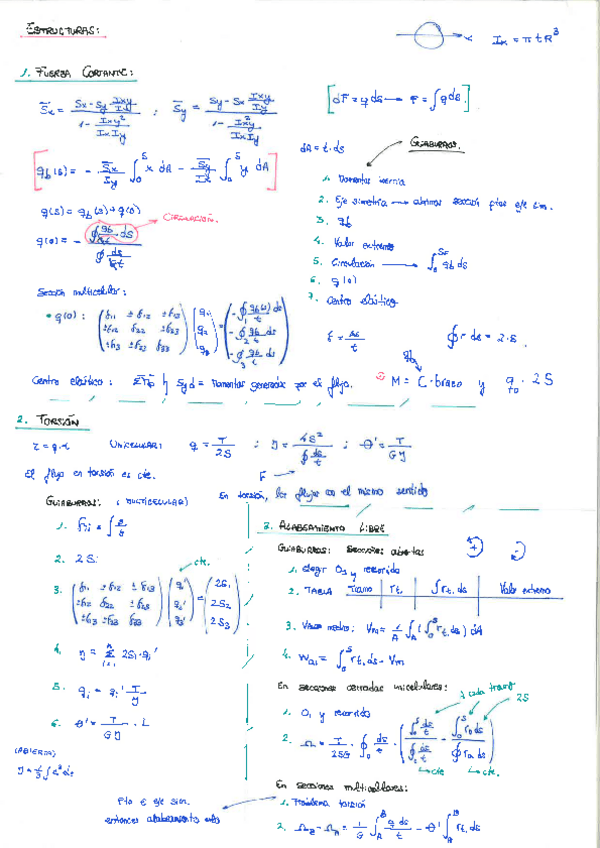 ESTRUCTURAS:
x Ix = π t R³
1. FUERZA CORTANTE:
S̄x = (Sx - Sy Ixy/Ix) / (1 - Ixy²/(Ix Iy)) ; S̄y = (Sy - Sx Ixy/Iy) / (1 - Ixy²/(Ix Iy))
[dF = q ds → F = ∫ q ds.]
dA = t.ds
GUIABURROS.
[qb(s) = - S̄x/Iy ∫₀ˢ x dA - S̄y/Ix ∫₀ˢ y dA]
q(s) = qb(s) + q(0)
CIRCULACIÓN.
q(0) = - (∮ qb/t ds) / (∮ ds/t)
1. Momentos inercia
2. Eje simetría → abrimos sección ptos eje sim.
3. qb
4. Valor extremo
5. Circulación → ∫₀^SF qb ds
6. q(0)
7. Centro elástico
Sección multicelular:
• q(0): (δ11 ±δ12 ±δ13 / ±δ12 δ22 ±δ23 / ±δ13 ±δ23 δ33) (q1 / q2 / q3) = (-∮₁ qb(s)/t ds / -∮₂ qb/t ds / -∮₃ qb/t ds)
∮ r ds = 2·S.
Centro elástico: Sy d = Momentos generados por el flujo.
M = C·brazo y q0 · 2S
2. TORSIÓN
UNICELULAR: q = T/2S ; J = 4S²/∮ ds/t ; θ' = T/GJ
El flujo en torsión es cte.
En torsión, los flujos con el mismo sentido
GUIABURROS: (MULTICELULAR)
1. δii = ∫
2. 2Si
cte.
3. (δ11 ±δ12 ±δ13 / ±δ12 δ22 ±δ23 / ±δ13 ±δ23 δ33) (q1' / q2' / q3') = (2S1 / 2S2 / 2S3)
4. J = Σ 2Si·qi'
5. qi = qi' T/J
6. θ' = T/GJ · L
(ABIERTA)
J = 1/3 ∫ t³ ds
Pto ∈ eje sim.
entonces alabeamiento nulo
3. ALABEAMIENTO LIBRE
GUIABURROS: Secciones abiertas
+ -
1. Elegir O1 y recorrido
2. TABLA Tramo rt. ∫rt. ds Valor extremo
3. Valor medio: Vm = 1/A ∫A (∫₀ˢ rt. ds) dA
4. = ∫₀ˢ rt. ds - Vm
En secciones cerradas unicelulares:
cada tramo
2S
1. O1 y recorrido
2. Ω = T/2SG · ∮₀ ds/t · (∫₀ˢ ds/t / ∮ ds/t - ∫₀ˢ r0 ds / ∮ r0 ds)
cte cte.
En secciones multicelulares:
1. Problema torsión
2. ΩB - ΩA = 1/G ∫A^B q ds/t - θ' ∫A^B rt. ds